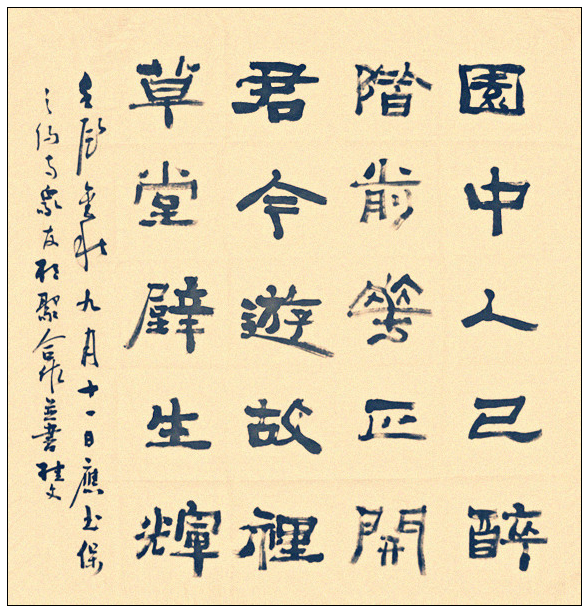 園中人已醉
階前華正開
君今遊故裡
草堂壁生輝
金秋九月十一日應保
之約与眾友相聚合作並書